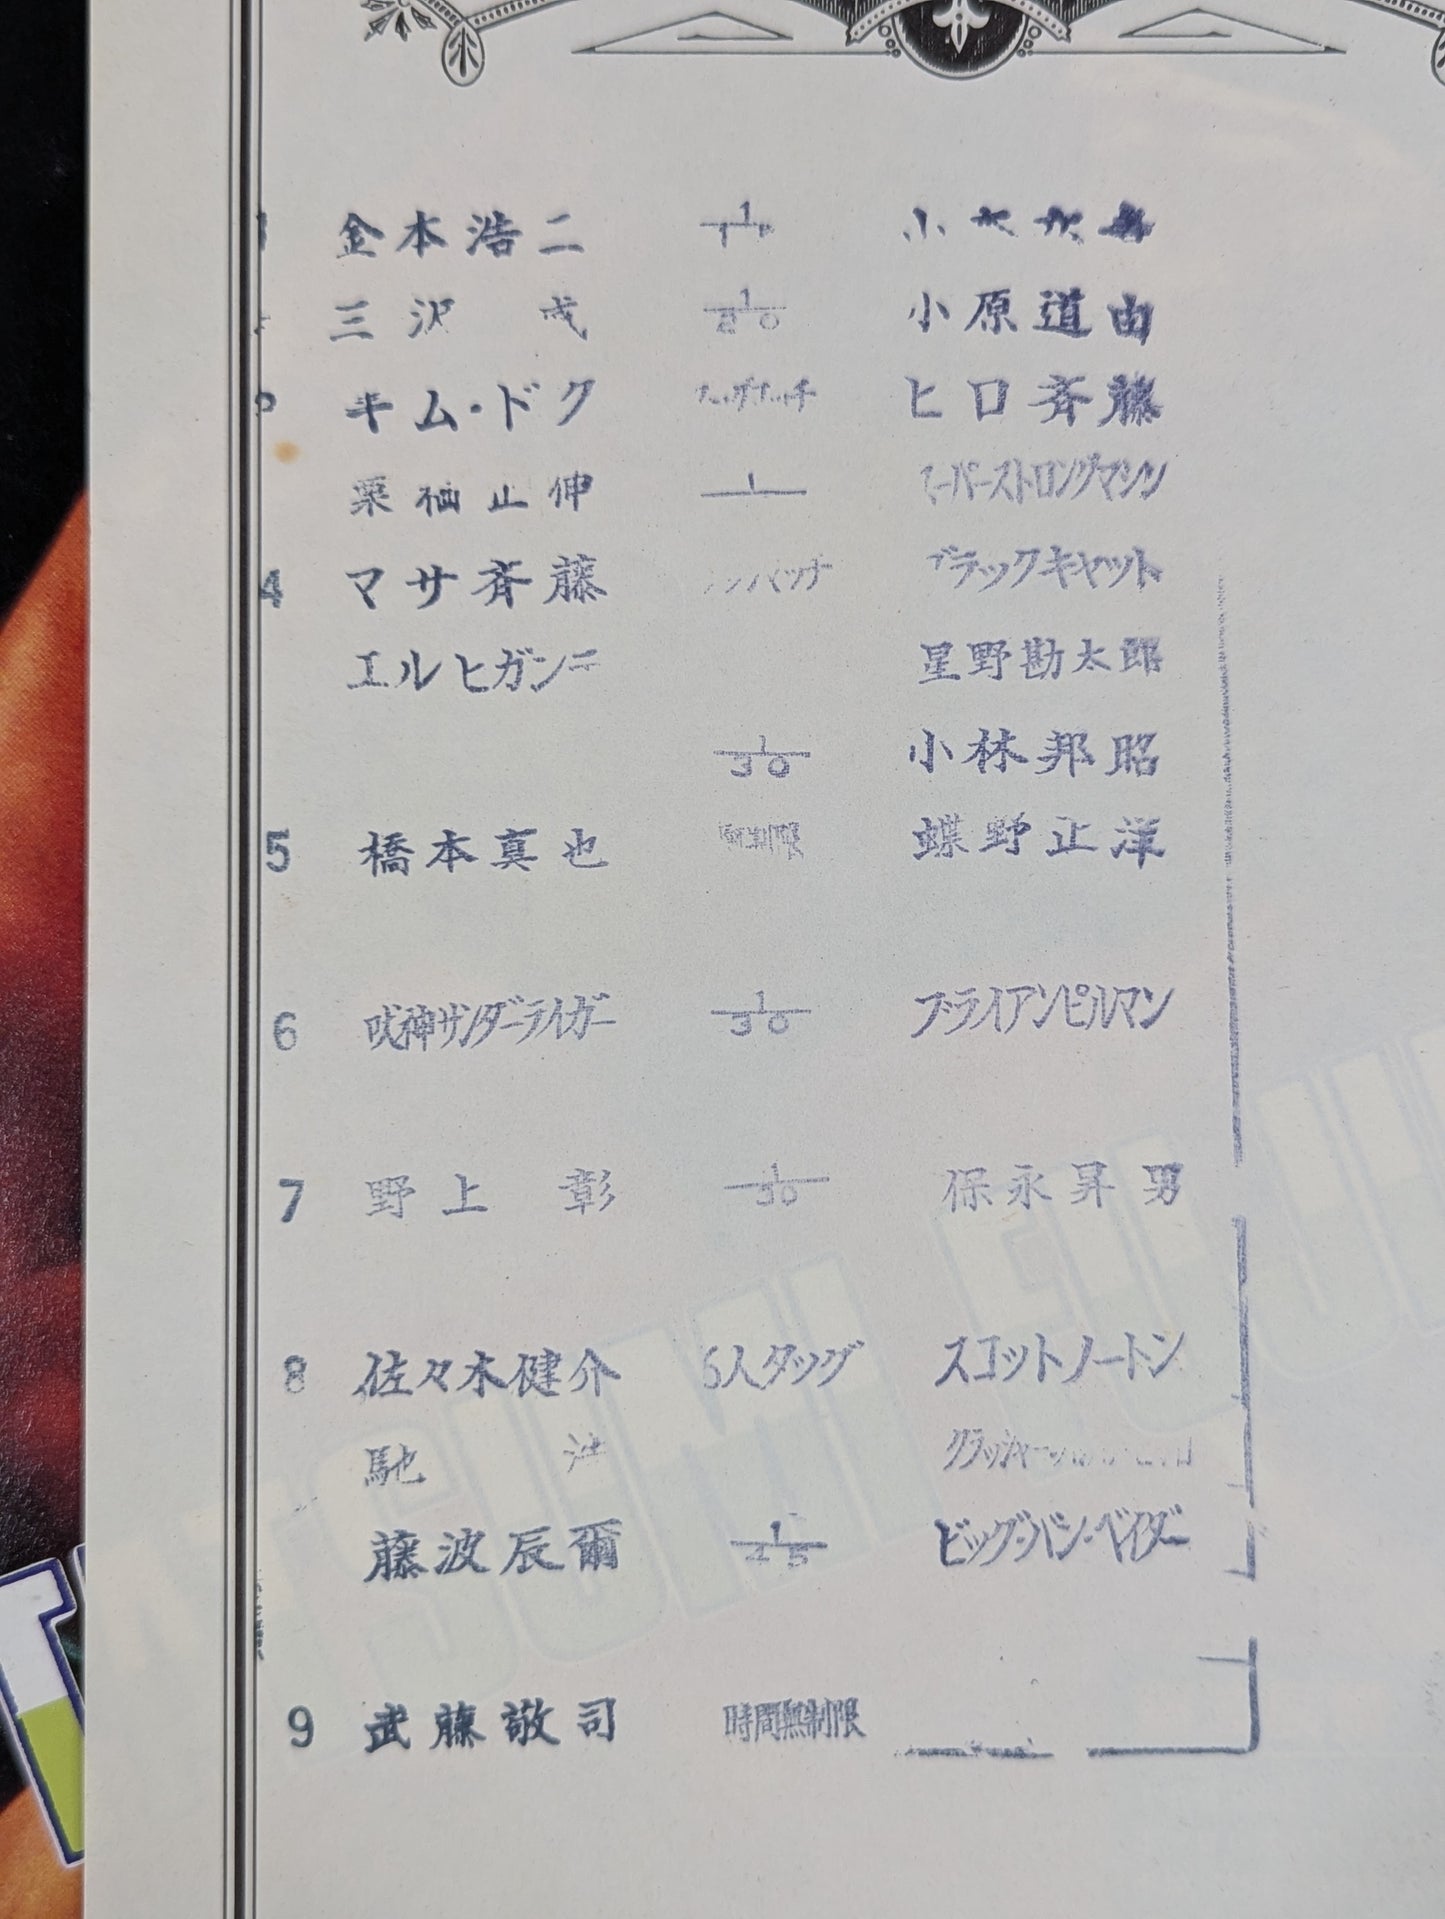 金本浩二 1 小
三沢 1/20 小原道由
キム・ドク タッグマッチ ヒロ斉藤
栗栖正伸 1 スーパーストロングマシン
4 マサ斉藤 ブラックキャット
エルヒガンテ 星野勘太郎
1/30 小林邦昭
5 橋本真也 制限 蝶野正洋
6 獣神サンダーライガー 1/30 ブライアンピルマン
7 野上 彰 1/30 保永昇男
8 佐々木健介 6人タッグ スコットノートン
馳 浩 クラッシャー
藤波辰爾 1/45 ビッグ・バン・ベイダー
9 武藤敬司 時間無制限